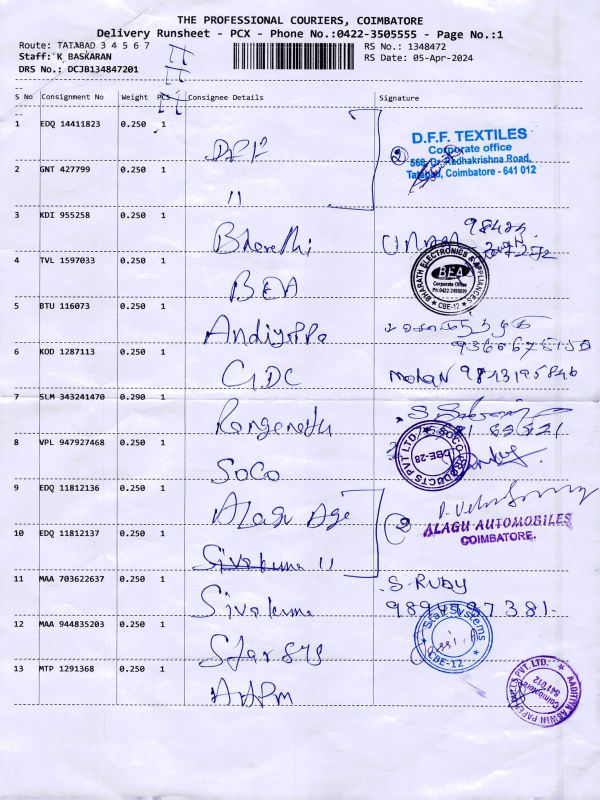 THE PROFESSIONAL COURIERS, COIMBATORE
Delivery Runsheet - PCX - Phone No.:0422-3505555 - Page No.:1
Route: TATABAD 3 4 5 6 7
RS No.: 1348472
Staff: K BASKARAN
RS Date: 05-Apr-2024
DRS No.: DCJB134847201
S No Consignment No Weight PCS Consignee Details Signature
1 EDQ 14411823 0.250 1
D.F.F. TEXTILES
Corporate office
568, Dr. Radhakrishna Road,
Tatabad, Coimbatore - 641 012
2 GNT 427799 0.250 1 11
3 KDI 955258 0.250 1 Bharathi
4 TVL 1597033 0.250 1 BEA
BHARATH ELECTRONICS & APPLIANCES
BEA
Corporate Office
CBE-12
5 BTU 116073 0.250 1 Andiyappa
6 KOD 1287113 0.250 1 GDC Mohan
7 SLM 343241470 0.290 1 Ranganathu
8 VPL 947927468 0.250 1 SOCO
SOCO PRODUCTS PVT LTD.
CBE-28
9 EDQ 11812136 0.250 1 Alagu Age
2
ALAGU AUTOMOBILES
COIMBATORE.
10 EDQ 11812137 0.250 1 11
11 MAA 703622637 0.250 1 Sivakuma S. Ruby
12 MAA 944835203 0.250 1 Star sys
Star Systems
CBE-12
13 MTP 1291368 0.250 1 AAPM
AADITYA ASWIN PAPER MILLS PVT. LTD.
Coimbatore
641 012